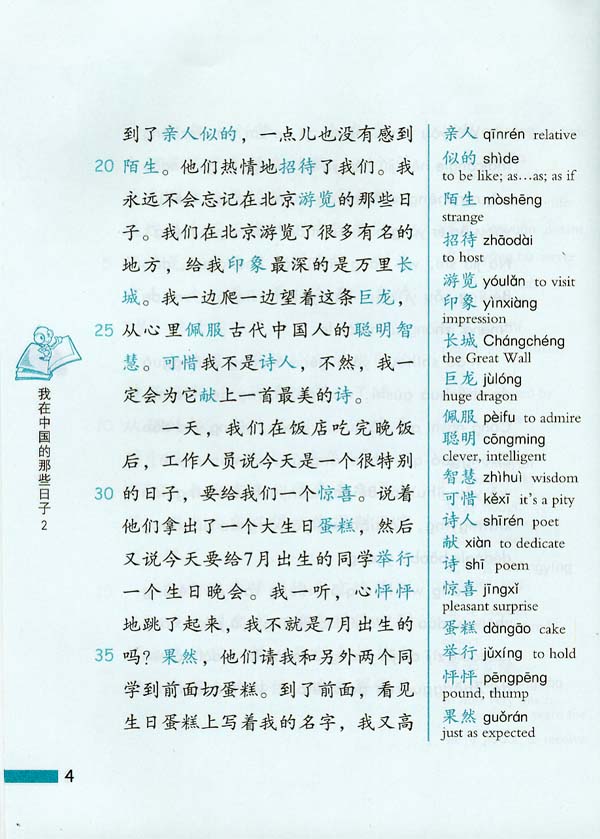 到了亲人似的，一点儿也没有感到
20 陌生。他们热情地招待了我们。我
永远不会忘记在北京游览的那些日
子。我们在北京游览了很多有名的
地方，给我印象最深的是万里长
城。我一边爬一边望着这条巨龙，
25 从心里佩服古代中国人的聪明智
慧。可惜我不是诗人，不然，我一
定会为它献上一首最美的诗。
一天，我们在饭店吃完晚饭
后，工作人员说今天是一个很特别
30 的日子，要给我们一个惊喜。说着
他们拿出了一个大生日蛋糕，然后
又说今天要给7月出生的同学举行
一个生日晚会。我一听，心怦怦
地跳了起来，我不就是7月出生的
35 吗？果然，他们请我和另外两个同
学到前面切蛋糕。到了前面，看见
生日蛋糕上写着我的名字，我又高
亲人 qīnrén relative
似的 shìde
to be like; as…as; as if
陌生 mòshēng
strange
招待 zhāodài
to host
游览 yóulǎn to visit
印象 yìnxiàng
impression
长城 Chángchéng
the Great Wall
巨龙 jùlóng
huge dragon
佩服 pèifu to admire
聪明 cōngming
clever, intelligent
智慧 zhìhuì wisdom
可惜 kěxī it's a pity
诗人 shīrén poet
献 xiàn to dedicate
诗 shī poem
惊喜 jīngxǐ
pleasant surprise
蛋糕 dàngāo cake
举行 jǔxíng to hold
怦怦 pēngpēng
pound, thump
果然 guǒrán
just as expected
我在中国的那些日子 2
4